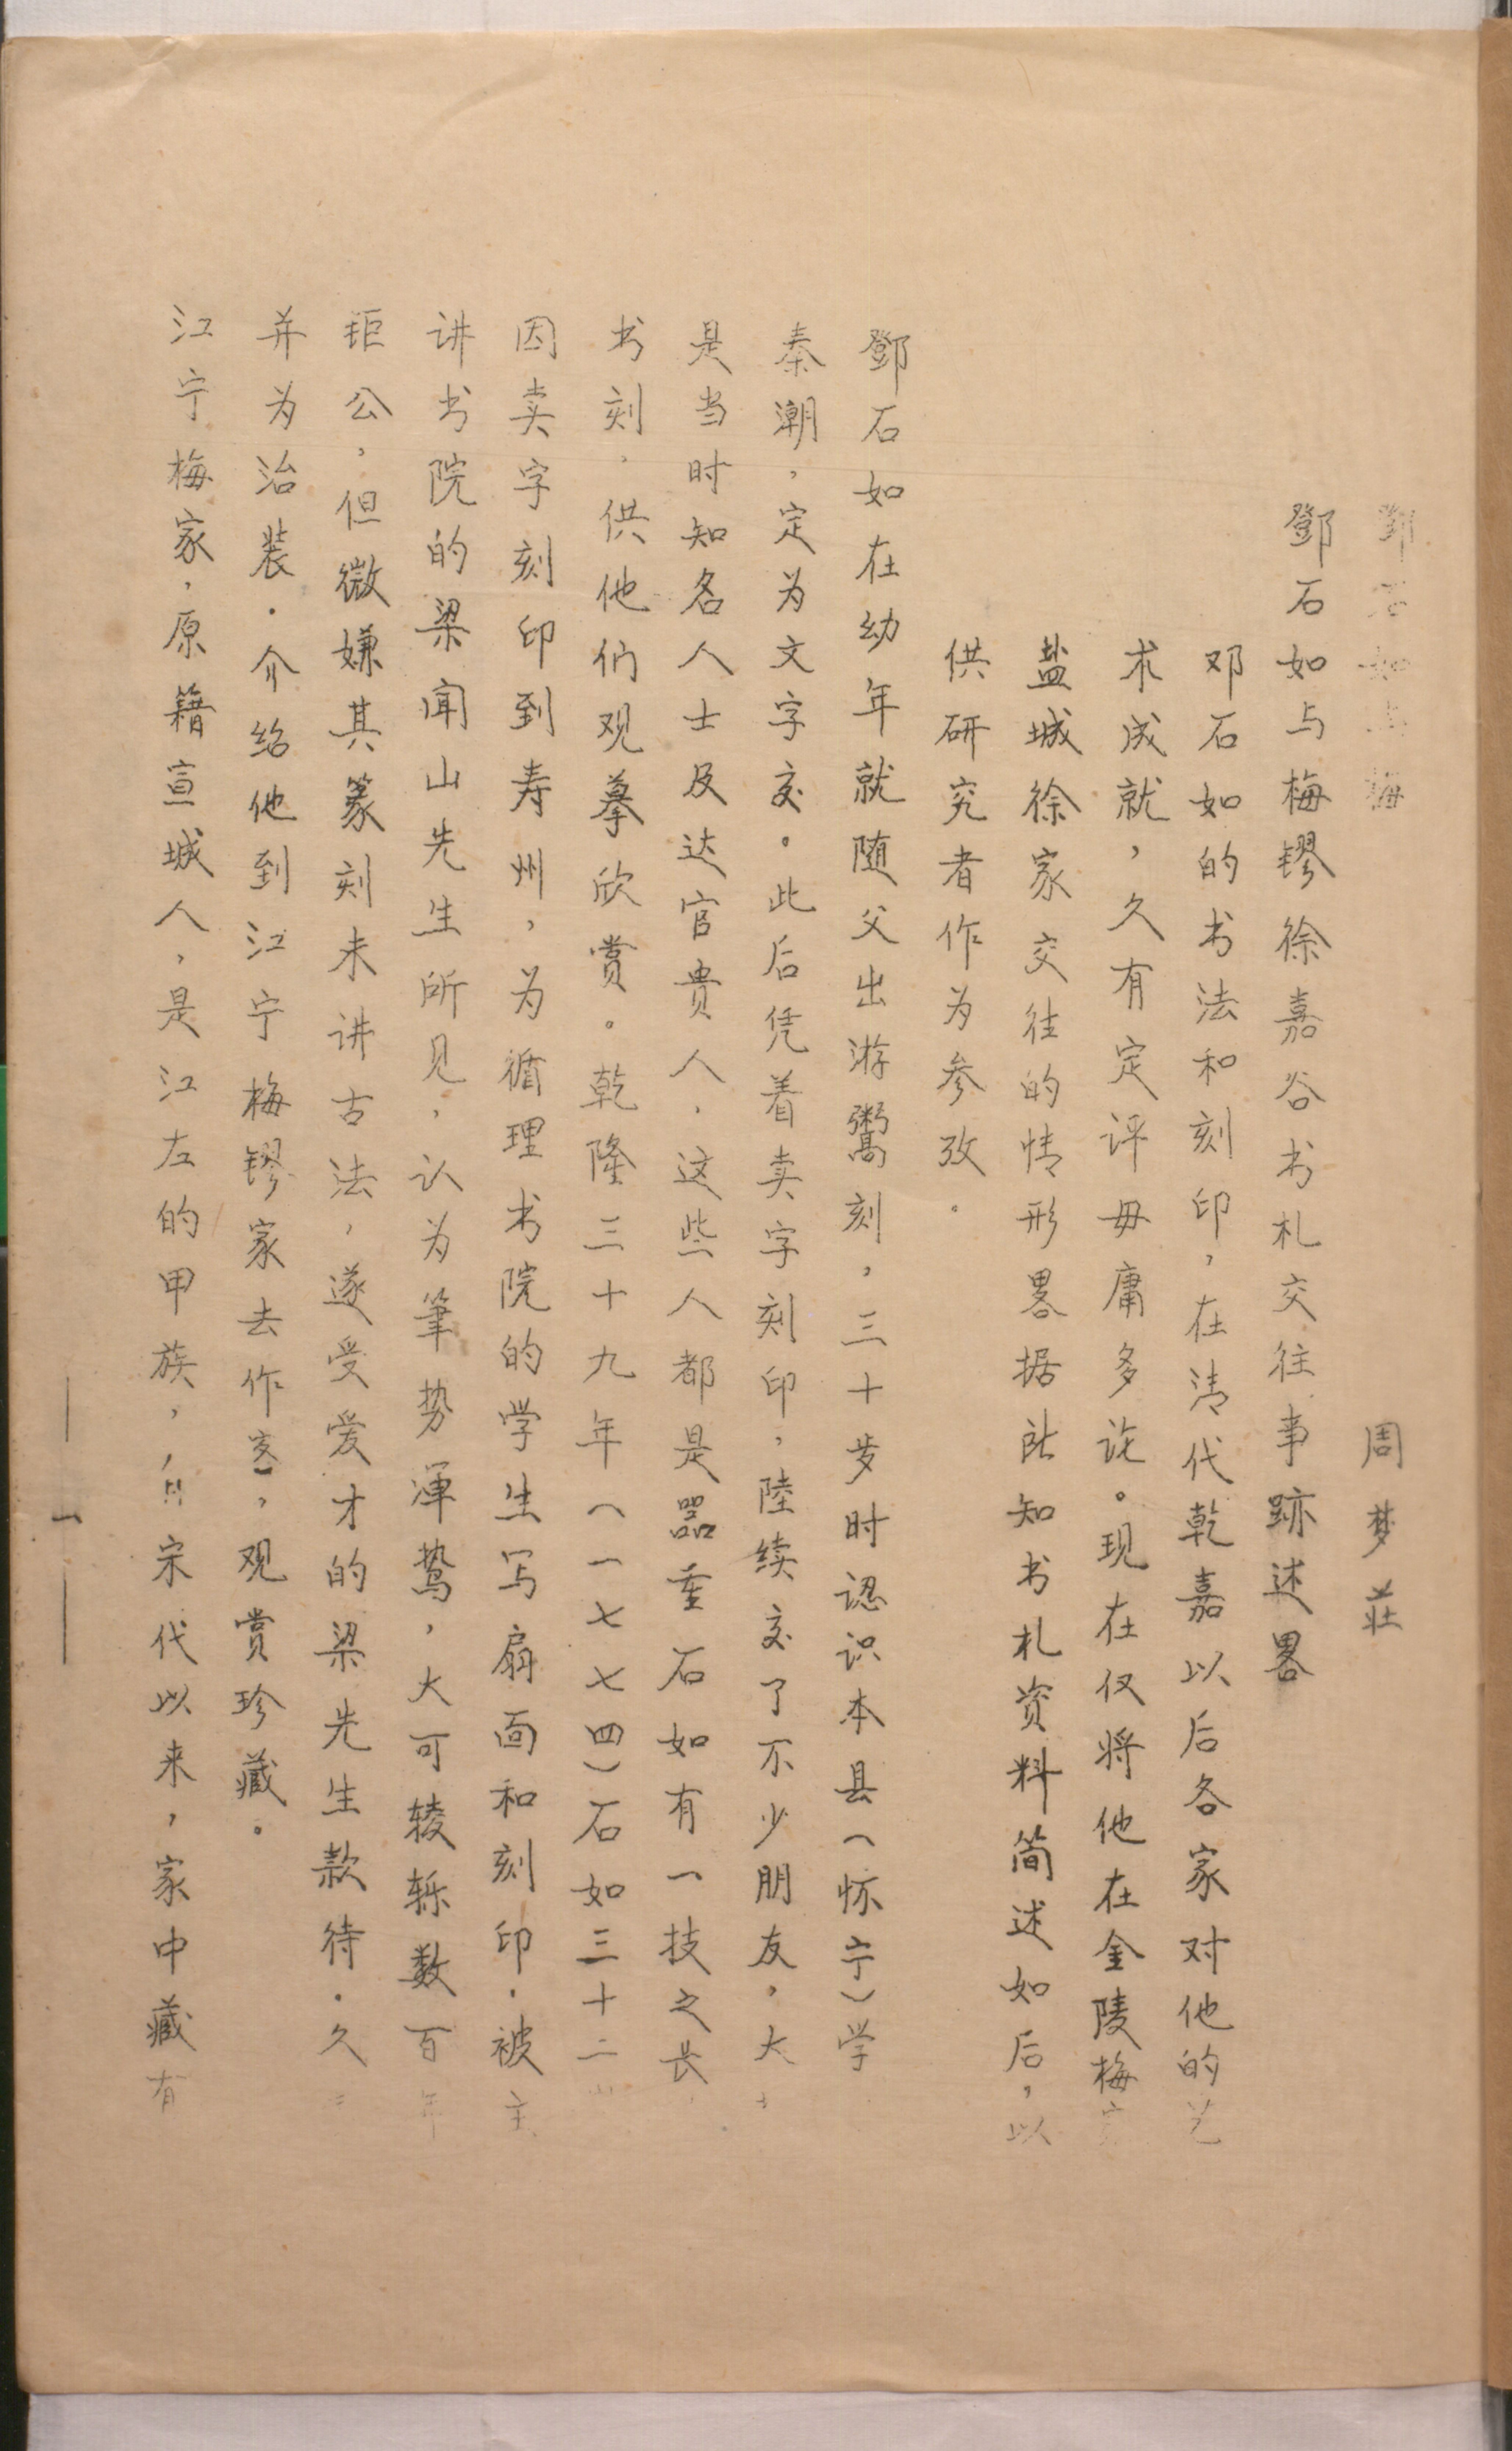 鄧石如与梅 周梦莊
鄧石如与梅镠徐嘉谷书札交往事跡述畧
邓石如的书法和刻印，在清代乾嘉以后各家对他的艺
术成就，久有定评毋庸多论。现在仅将他在金陵梅家
盐城徐家交往的情形畧据所知书札资料简述如后，以
供研究者作为参攷。
鄧石如在幼年就随父出游鬻刻，三十岁时认识本县（怀宁）学
秦潮，定为文字交。此后凭着卖字刻印，陸续交了不少朋友，大
是当时知名人士及达官贵人，这些人都是器重石如有一技之长，
书刻，供他们观摹欣赏。乾隆三十九年（一七七四）石如三十二
因卖字刻印到寿州，为循理书院的学生写扇面和刻印．被主
讲书院的梁闻山先生所见，认为筆势渾鸷，大可轥轹数百年
钜公，但微嫌其篆刻未讲古法，遂受爱才的梁先生款待．久
并为治装．介给他到江宁梅镠家去作客，观赏珍藏。
江宁梅家，原籍宣城人，是江左的甲族，自宋代以来，家中藏有
一